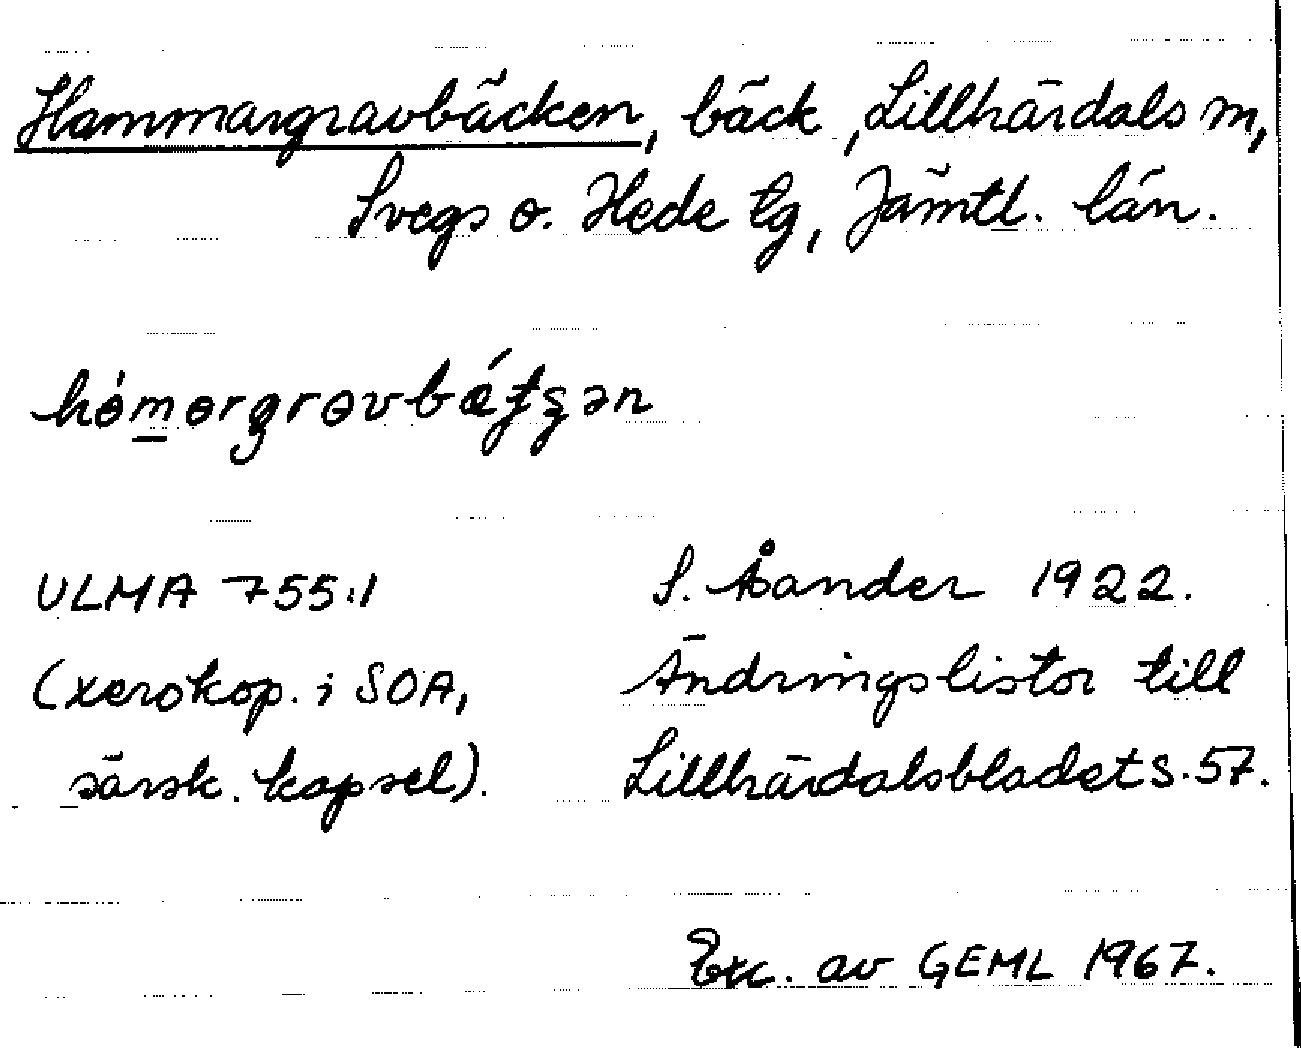 Hammargravbäcken, bäck, Lillhärdals sn,
Svegs o. Hede tg, Jämtl. län.
hɵ́m̲ɵrgrɵvbǽʈʂən
ULMA 755:1 S. Åsander 1922.
(xerokop. i SOA, Ändringslistor till
särsk. kapsel). Lillhärdalsbladet s. 57.
Exc. av GEML 1967.